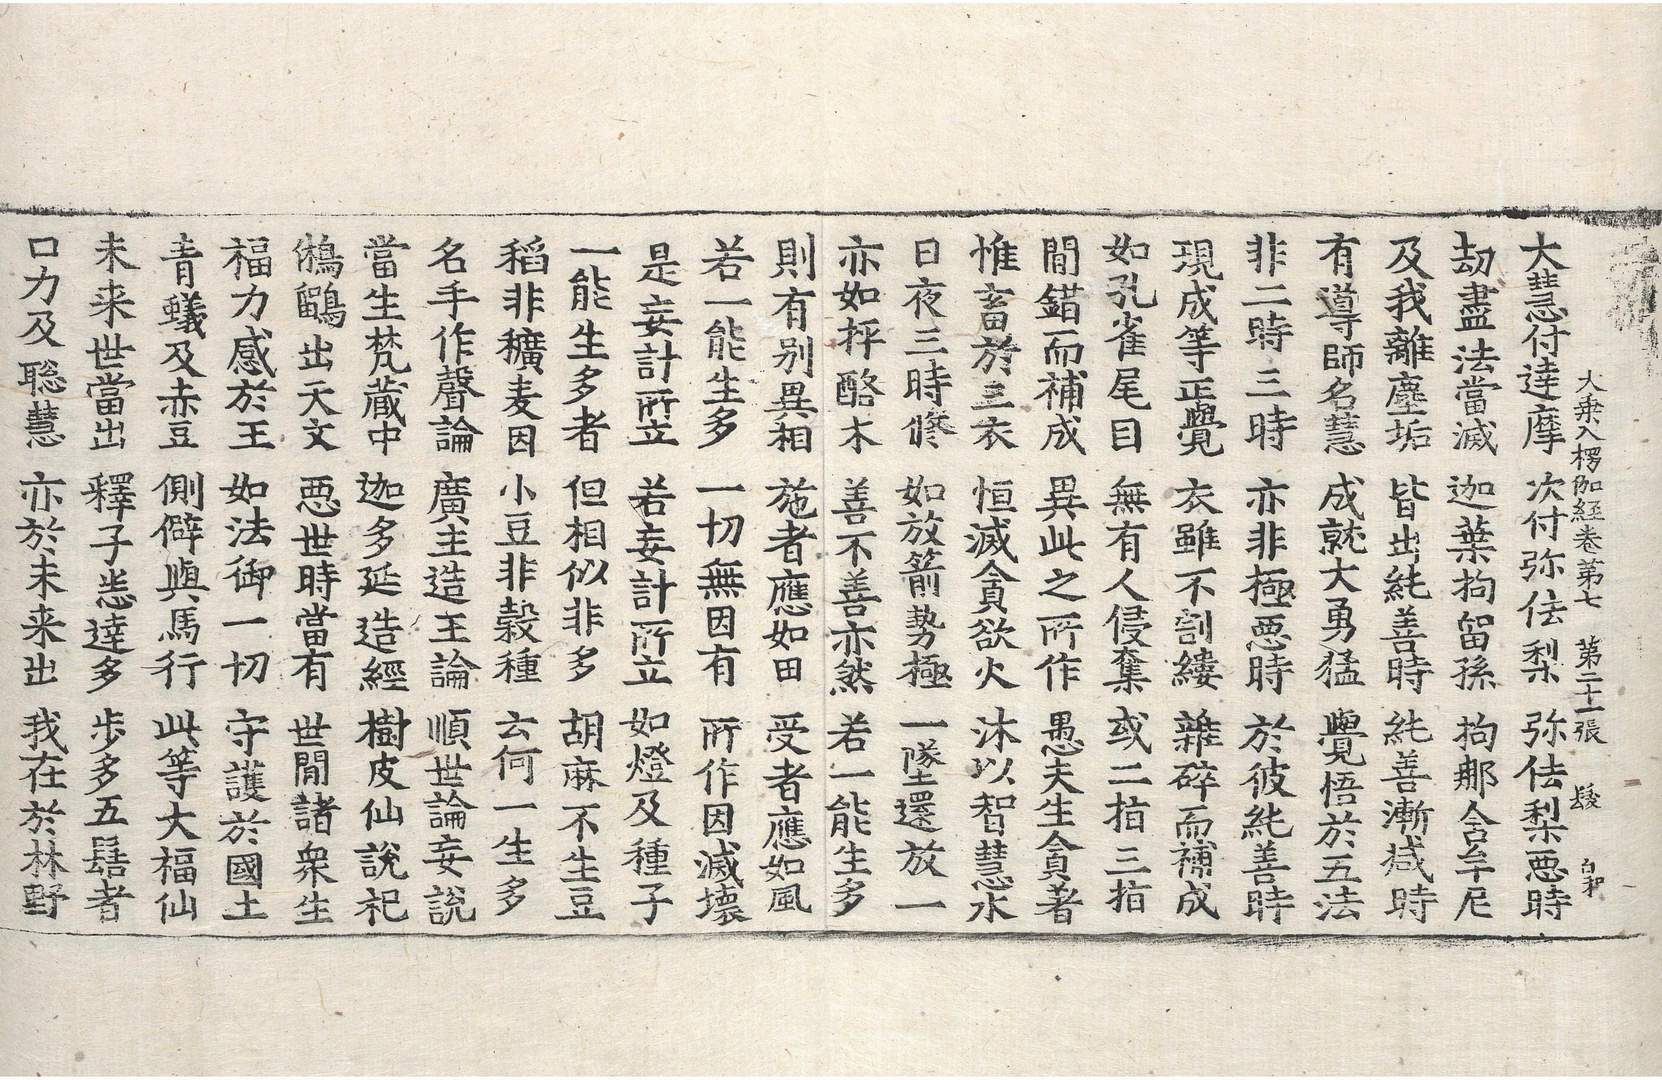 大乘入楞伽經卷第七 第二十一張 髮 白和
大慧付達摩 次付弥佉梨 弥佉梨惡時
劫盡法當滅 迦葉拘留孫 拘那含牟尼
及我離塵垢 皆出純善時 純善漸減時
有導師名慧 成就大勇猛 覺悟於五法
非二時三時 亦非極惡時 於彼純善時
現成等正覺 衣雖不割縷 雜碎而補成
如孔雀尾目 無有人侵奪 或二指三指
間錯而補成 異此之所作 愚夫生貪著
惟畜於三衣 恒滅貪欲火 沐以智慧水
日夜三時修 如放箭勢極 一墜還放一
亦如抨酪木 善不善亦然 若一能生多
則有別異相 施者應如田 受者應如風
若一能生多 一切無因有 所作因滅壞
是妄計所立 若妄計所立 如燈及種子
一能生多者 但相似非多 胡麻不生豆
稻非穬麦因 小豆非穀種 云何一生多
名手作聲論 廣主造王論 順世論妄說
當生梵藏中 迦多延造經 樹皮仙說祀
鵂鶹出天文 惡世時當有 世間諸衆生
福力感於王 如法御一切 守護於國土
青蟻及赤豆 側僻與馬行 此等大福仙
未来世當出 釋子悉達多 步多五髻者
口力及聡慧 亦於未来出 我在於林野